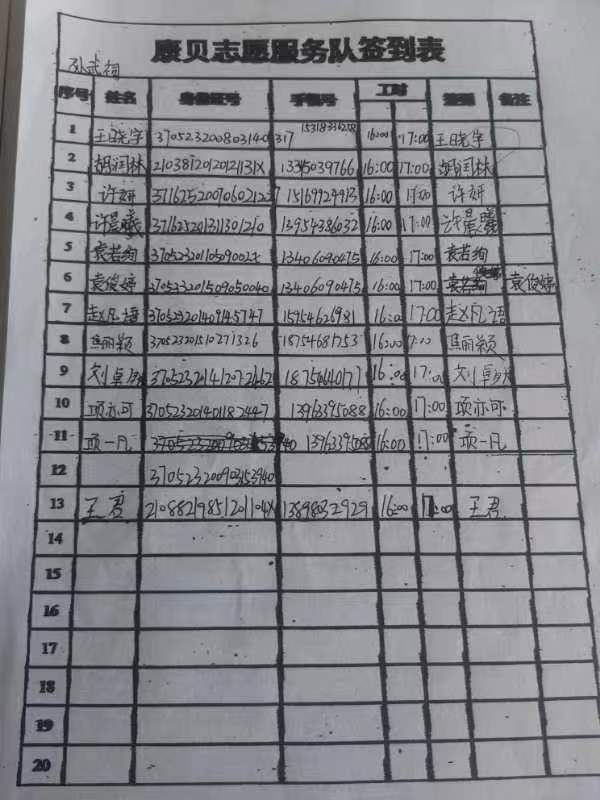 康贝志愿服务队签到表
序号 姓名 身份证号 手机号 工时 签到 备注
1 王晓宇 370523200803140317 16:00 17:00 王晓宇
2 胡闰林 21038120120121131X 16:00 17:00 胡闰林
3 许妍 15169924913 16:00 17:00 许妍
4 许晨曦 371625201311301210 13954386032 16:00 17:00 许晨曦
5 袁若绚 37052320110509002X 13406090475 16:00 17:00 袁若绚
6 袁俊婷 370523201509050040 13406090475 16:00 17:00 袁俊婷
7 赵凡语 370523201409145747 15954626981 16:00 17:00 赵凡语
8 焦丽颖 370523201510271326 18754681753 16:00 17:00 焦丽颖
9 16:00 17:00
10 项亦可 370523201401182447 13963395088 16:00 17:00 项亦可
11 项一凡 13963395088 16:00 17:00 项一凡
12 370523200903153940
13 王君 21088219851201104X 13898032929 16:00 17:00 王君
14
15
16
17
18
19
20